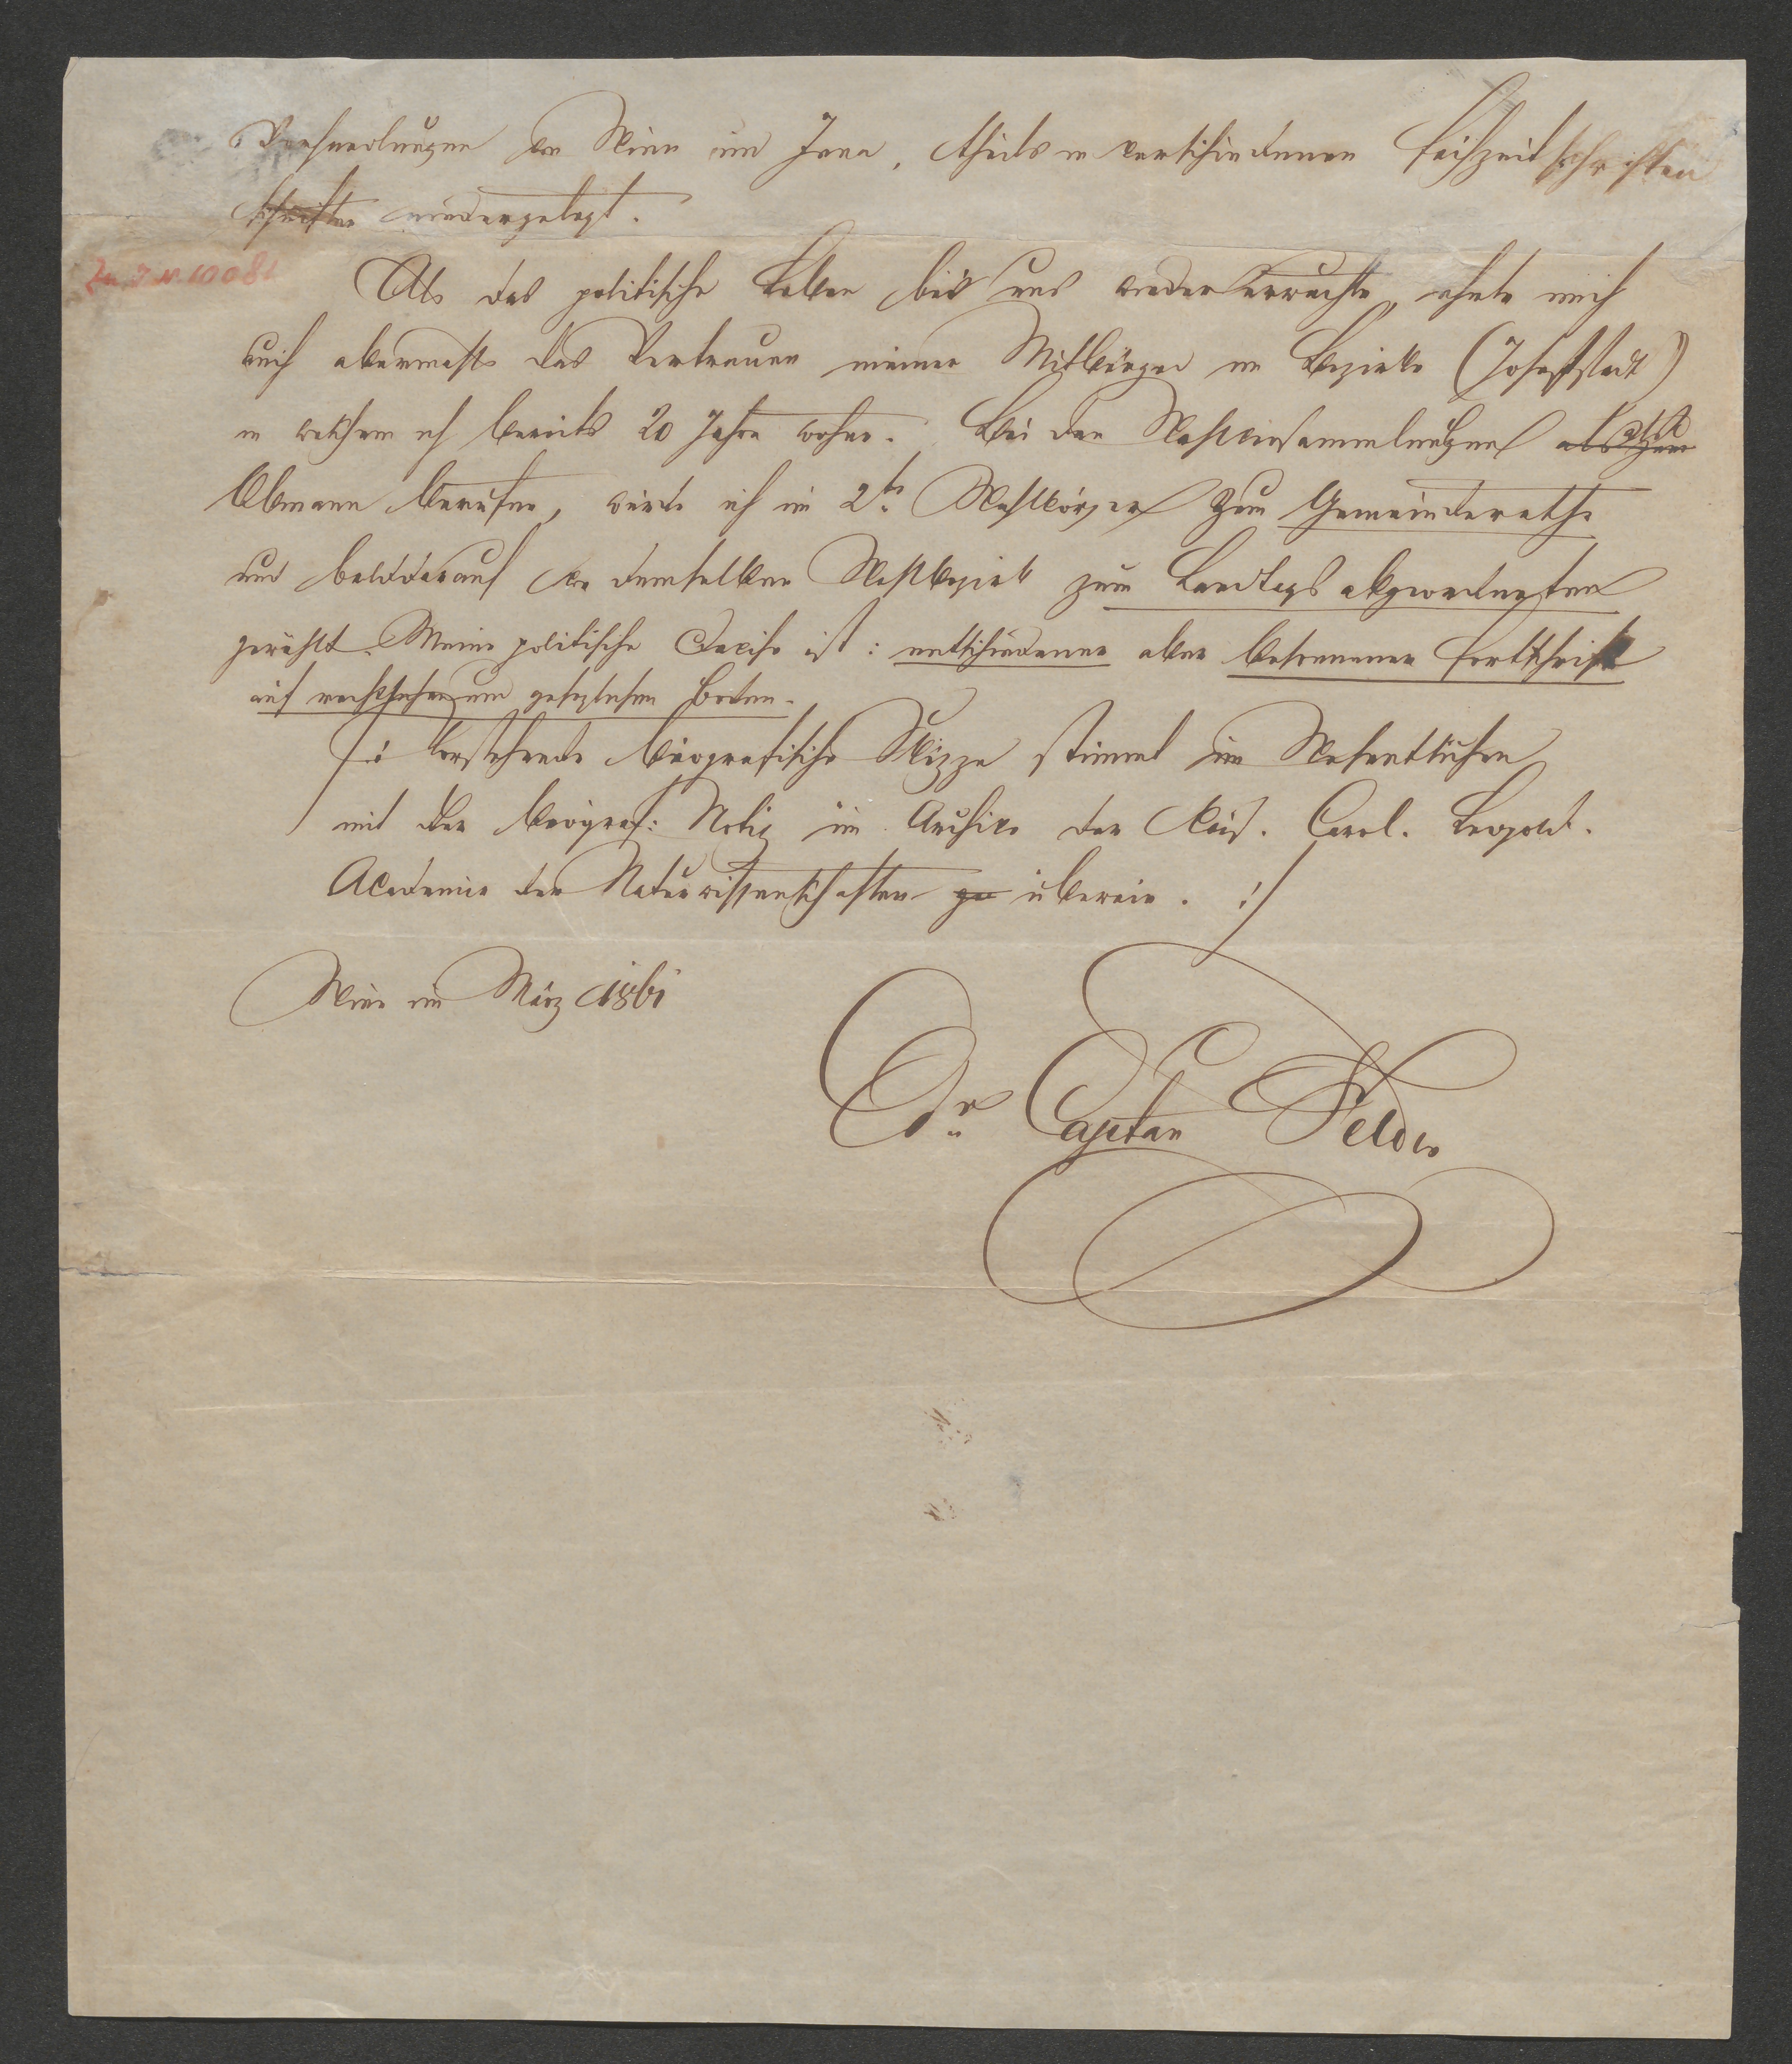 Verhandlungen in Wien und Jena, theils in verschiedenen Fachzeitschriften
schriften niedergelegt.
Zu I.N. 10081
Als das politische Leben bei uns wieder erwachte, ehrte mich
auch abermals das Vertrauen meiner Mitbürger im Bezirke (Josefstadt)
in welchem ich bereits 20 Jahre wohne. Bei den Wahlversammlungen als
Obmann berufen, wurde ich im 2ten Wahlkörper zum Gemeinderathe
und bald darauf in demselben Wahlbezirk zum Landtagsabgeordneten
gewählt. Meine politische Devise ist: entschiedener aber besonnener Fortschritt
auf rechtlichem und gesezlichem Boden.
/: Vorstehende biografische Skizze stimmt im Wesentlichen
mit der biograf: Notiz im Archive der Kais. Carol. Leopold.
Academie der Naturwissenschaften überein. :/
Wien im März 1861
Dr. Cajetan Felder